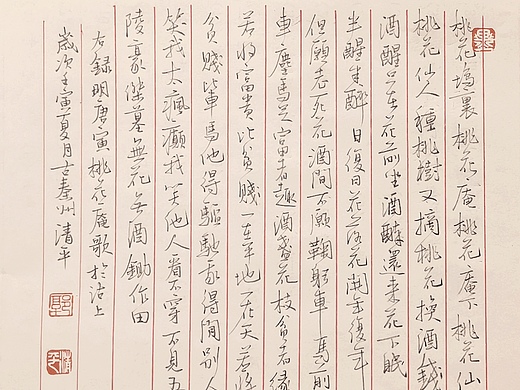 桃花塢裏桃花庵桃花庵下桃花仙
桃花仙人種桃樹又摘桃花換酒錢
酒醒只在花前坐酒醉還来花下眠
半醒半醉日復日花落花開年復年
但願老死花酒間不願鞠躬車馬前
車塵馬足富者趣酒盞花枝貧者緣
若將富貴比貧賤一在平地一在天若將
貧賤比車馬他得驅馳我得閒別人
笑我太瘋癲我笑他人看不穿不見五
陵豪傑墓無花無酒鋤作田
右録明唐寅桃花庵歌於沽上
歲次壬寅夏月古秦州清平